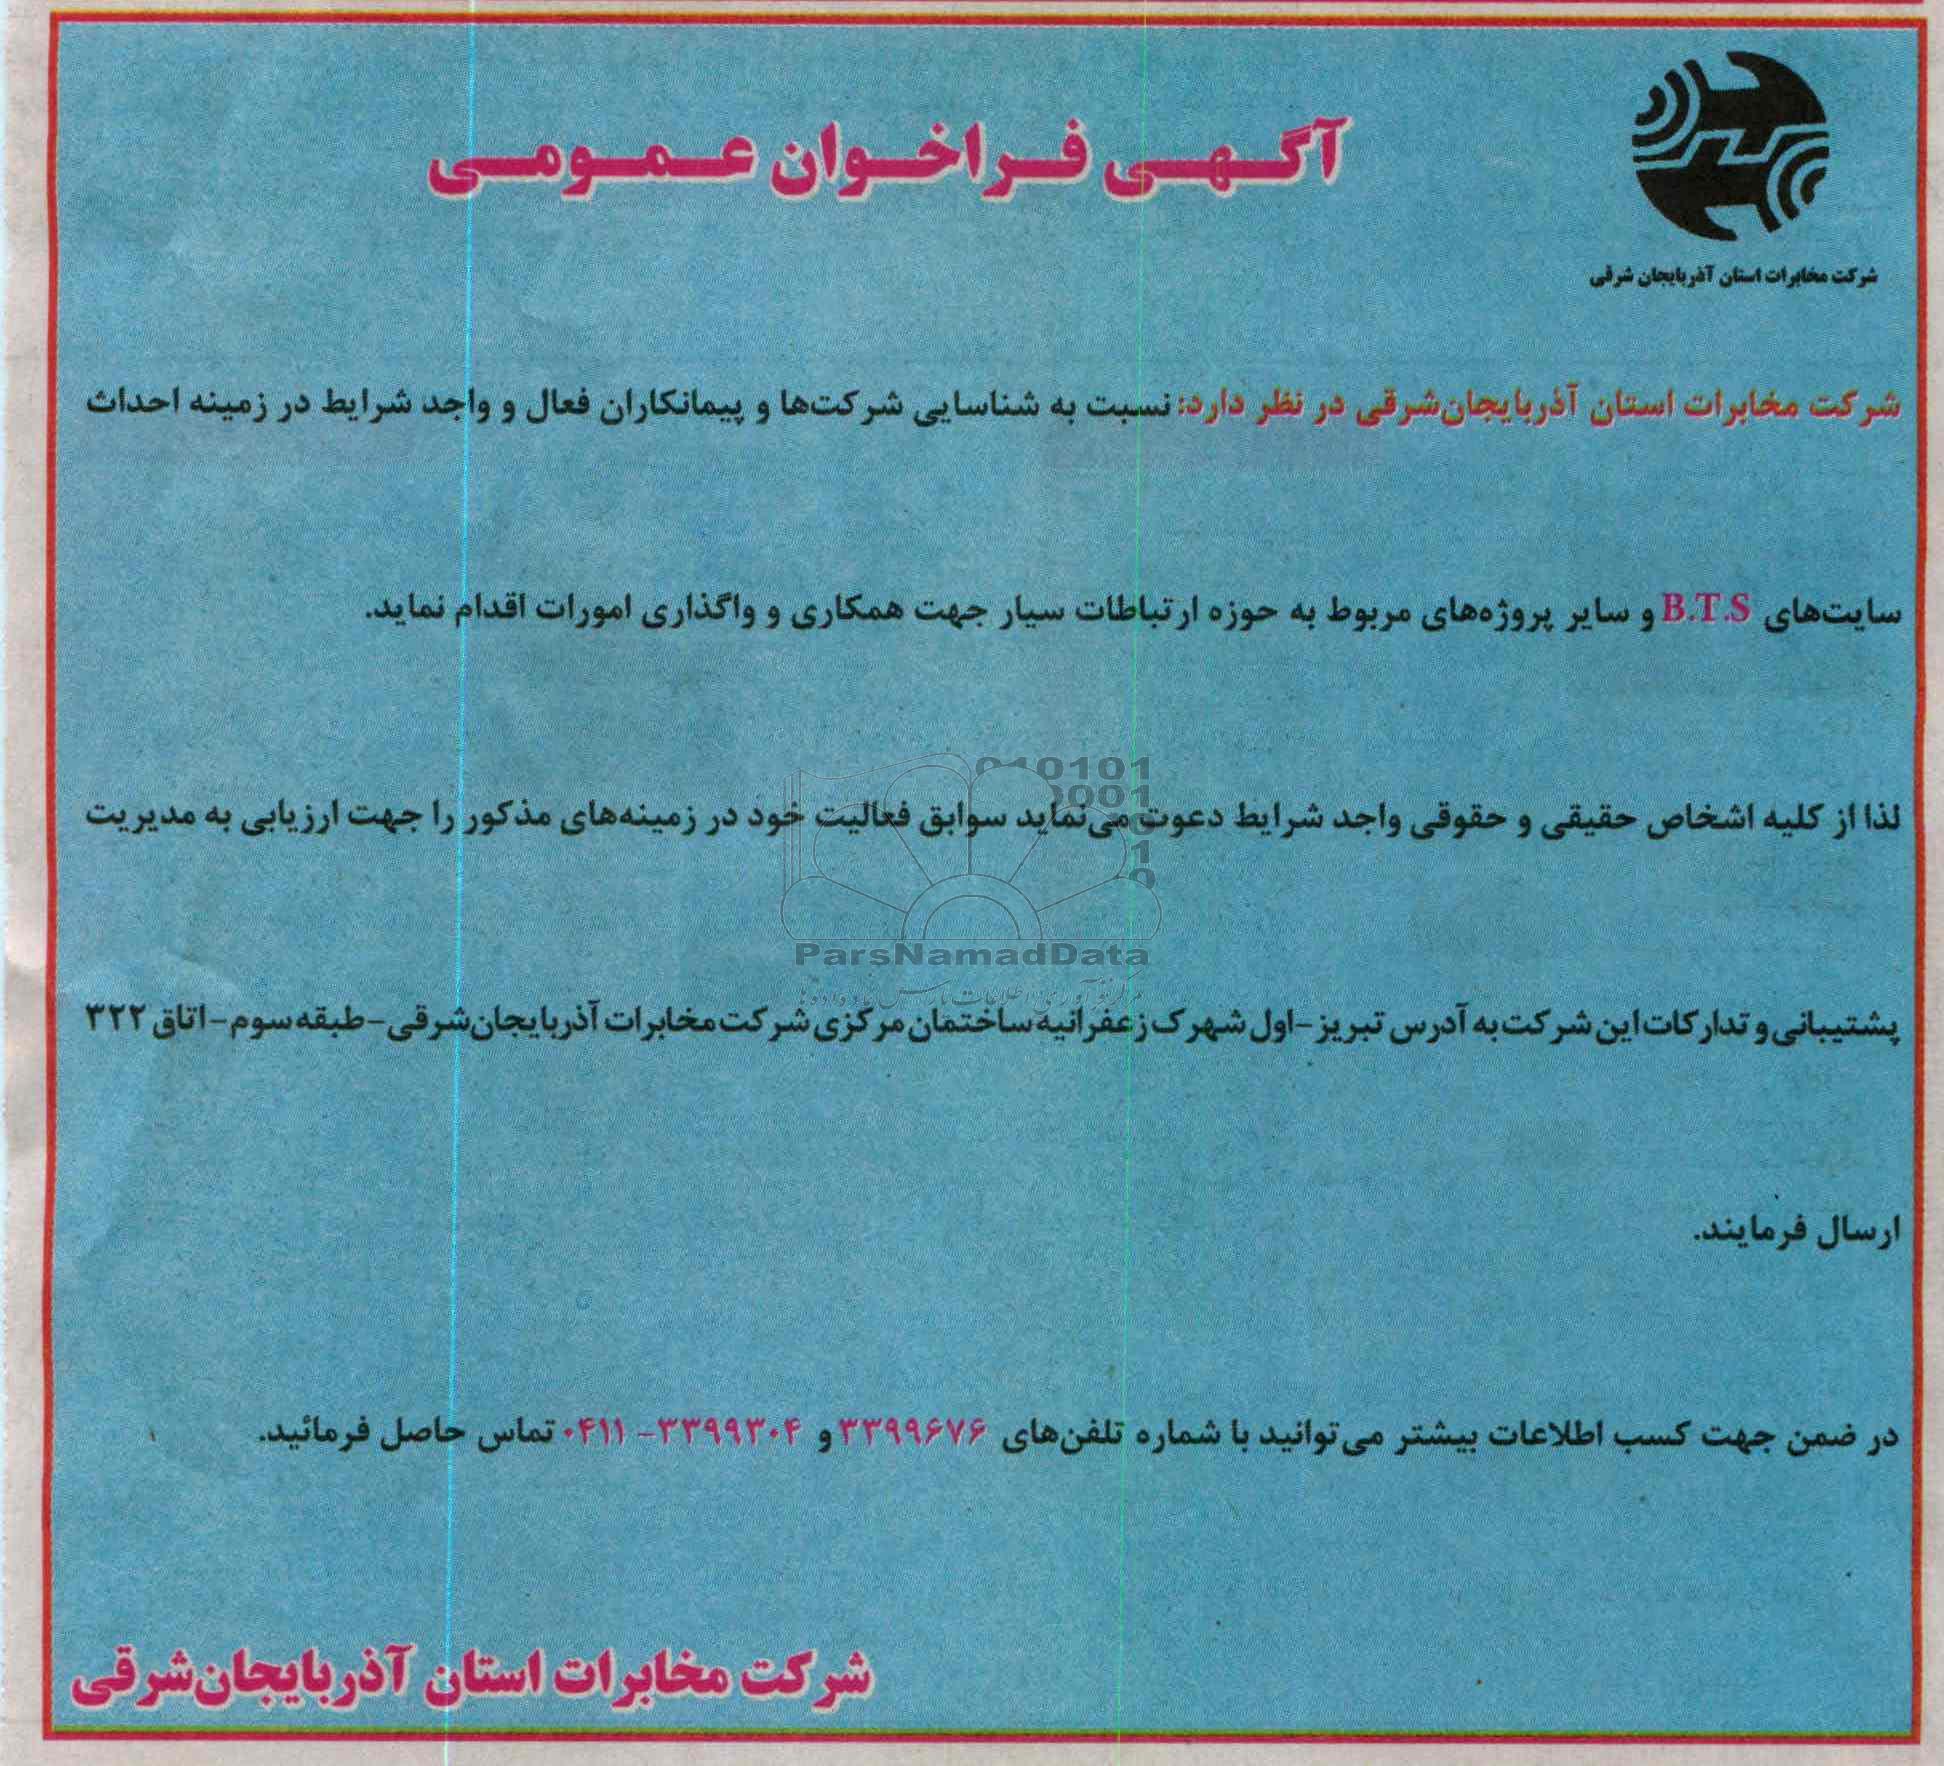 آگهی فراخوان عمومی
شرکت مخابرات استان آذربایجان شرقی
شرکت مخابرات استان آذربایجان‌شرقی در نظر دارد: نسبت به شناسایی شرکت‌ها و پیمانکاران فعال و واجد شرایط در زمینه احداث
سایت‌های B.T.S و سایر پروژه‌های مربوط به حوزه ارتباطات سیار جهت همکاری و واگذاری امورات اقدام نماید.
لذا از کلیه اشخاص حقیقی و حقوقی واجد شرایط دعوت می‌نماید سوابق فعالیت خود در زمینه‌های مذکور را جهت ارزیابی به مدیریت
ParsNamadData
مرکز فرآوری اطلاعات پارس نماد داده‌ها
پشتیبانی و تدارکات این شرکت به آدرس تبریز - اول شهرک زعفرانیه ساختمان مرکزی شرکت مخابرات آذربایجان‌شرقی - طبقه سوم - اتاق ۳۲۲
ارسال فرمایند.
در ضمن جهت کسب اطلاعات بیشتر می‌توانید با شماره تلفن‌های ۳۳۹۹۶۷۶ و ۳۳۹۹۳۰۴ - ۰۴۱۱ تماس حاصل فرمائید.
شرکت مخابرات استان آذربایجان‌شرقی